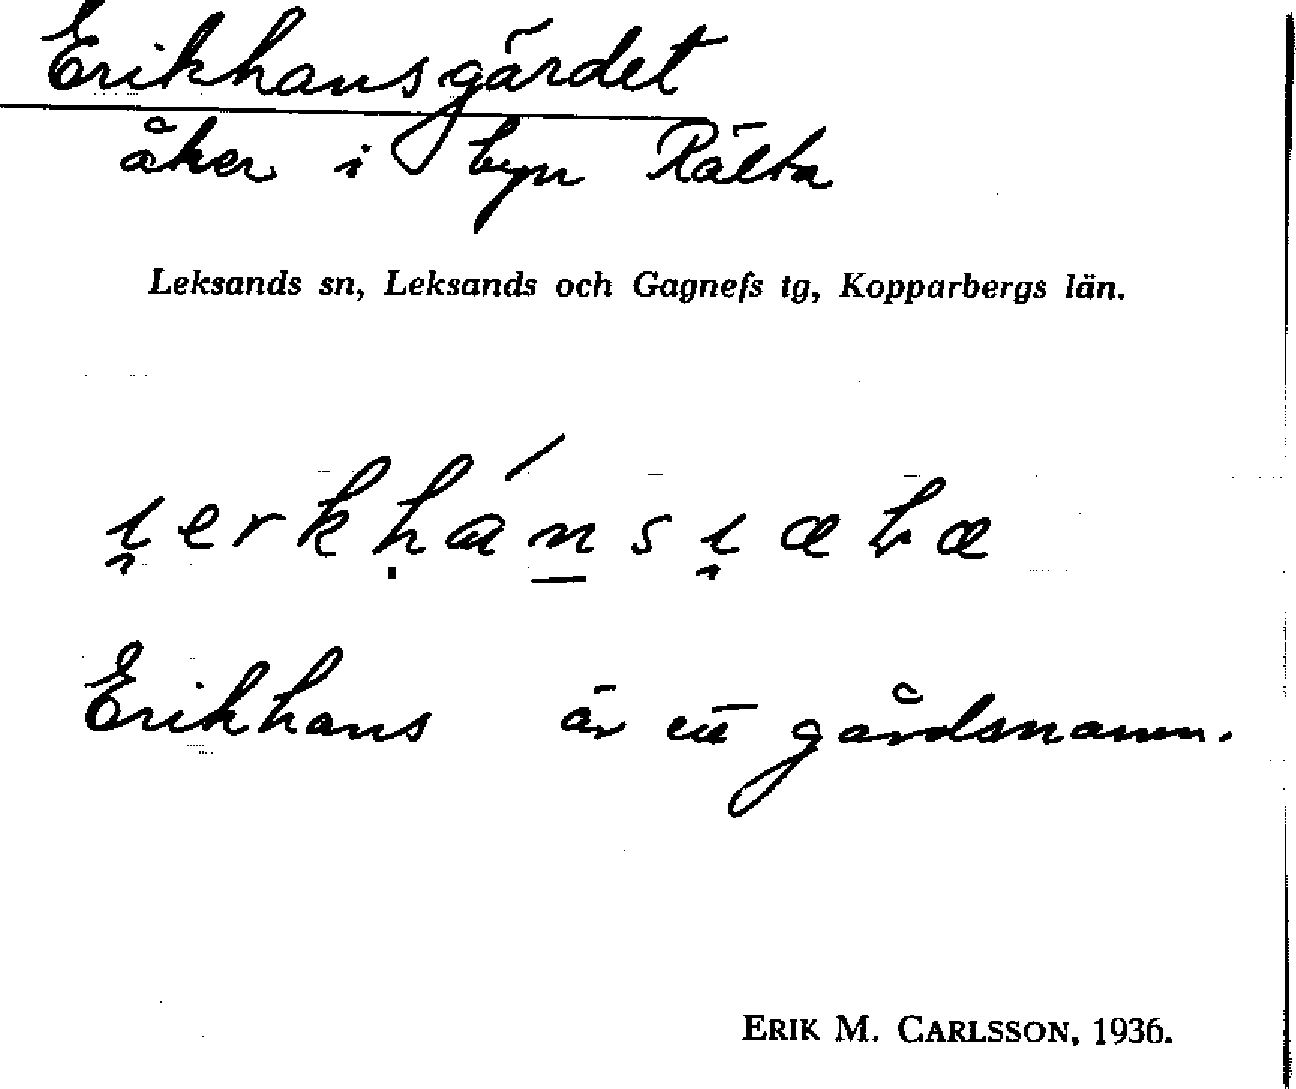 Erikhansgärdet
åker i byn Rälta
Leksands sn, Leksands och Gagnefs tg, Kopparbergs län.
Erikhans är ett gårdsnamn.
ERIK M. CARLSSON, 1936.